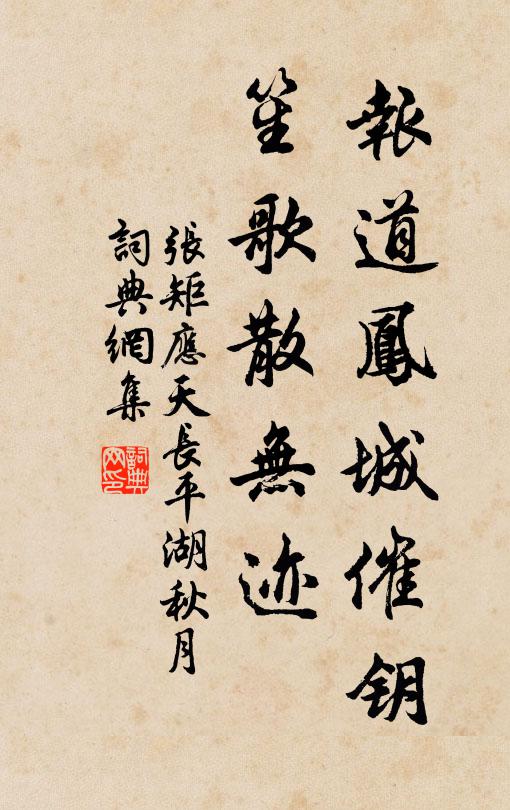 報道鳳城催钥
笙歌散無迹
張矩應天長平湖秋月
詞典網集
詞典网印